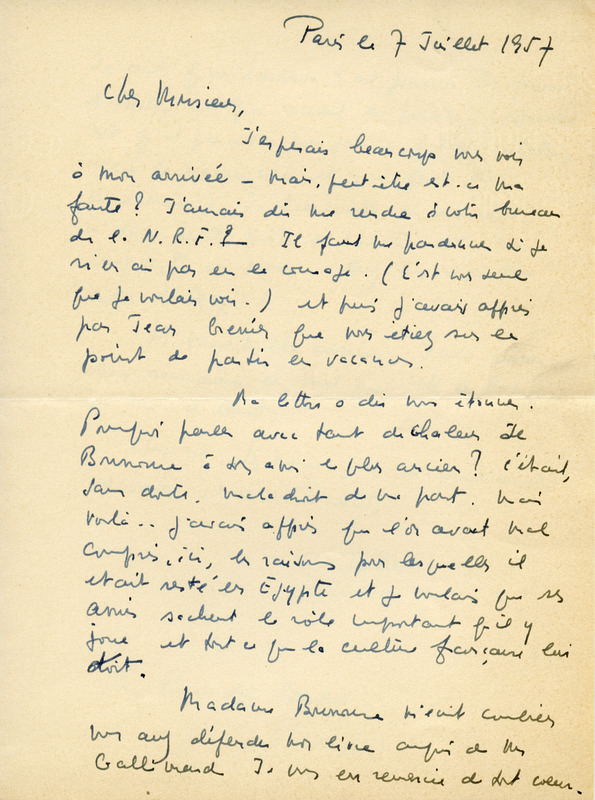 Paris le 7 Juillet 1957
Cher Monsieur,
J'esperais beaucoup vous voir
à mon arrivée – mais, peut-être est-ce ma
faute? J'aurais dû me rendre à votre bureau
de la N.R.F.? Il faut me pardonner si je
n'en ai pas eu le courage. (C'est vous seul
que je voulais voir.) et puis j'avais appris
par Jean Grenier que vous étiez sur le
point de partir en vacances.
Ma lettre a dû vous étonner.
Pourquoi parler avec tant de chaleur de
Bonnome à son ami le plus ancien? C'était,
sans doute, maladroit de ma part. Mais
voilà.. j'avais appris que l'on avait mal
compris, ici, les raisons pour lesquelles il
etait resté en Egypte et je voulais que ses
amis sachent le rôle important qu'il y
joue et tout ce que la culture française lui
doit.
Madame m'ecrit combien
vous avez défendu mon livre auprès de Mr
Gallimard Je vous en remercie de tout coeur.